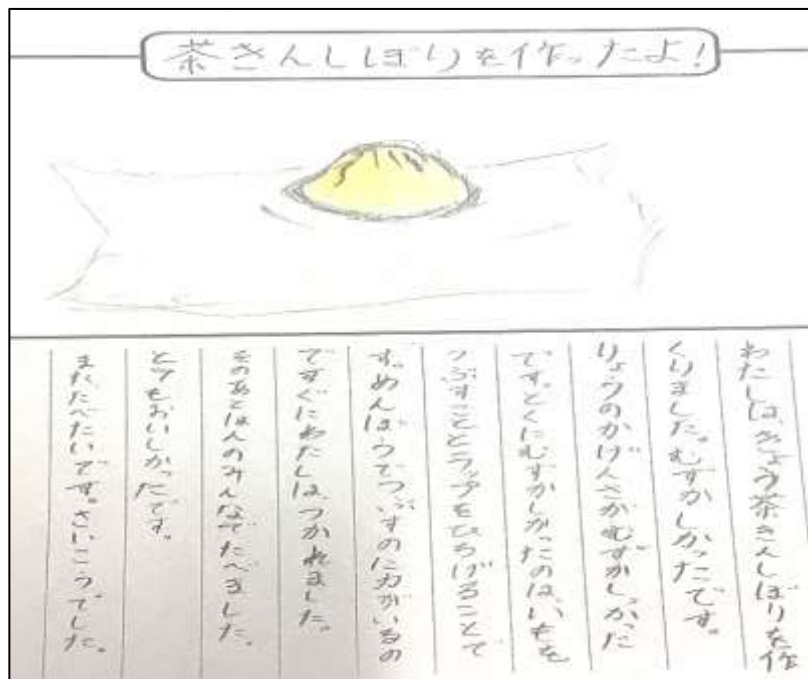 茶きんしぼりを作ったよ!
わたしは、きょう茶きんしぼりを作
くりました。むすかしかったです。
りょうのかげんさがむずかしかった
です。とくにむずかしかったのは、いもを
つぶすこととラップをひろげることで
す。めんぼうでつぶすのに力がいるの
ですぐにわたしは、つかれました。
そのあとはんのみんなでたべました。
とてもおいしかったです。
また、たべたいです。さいこうでした。